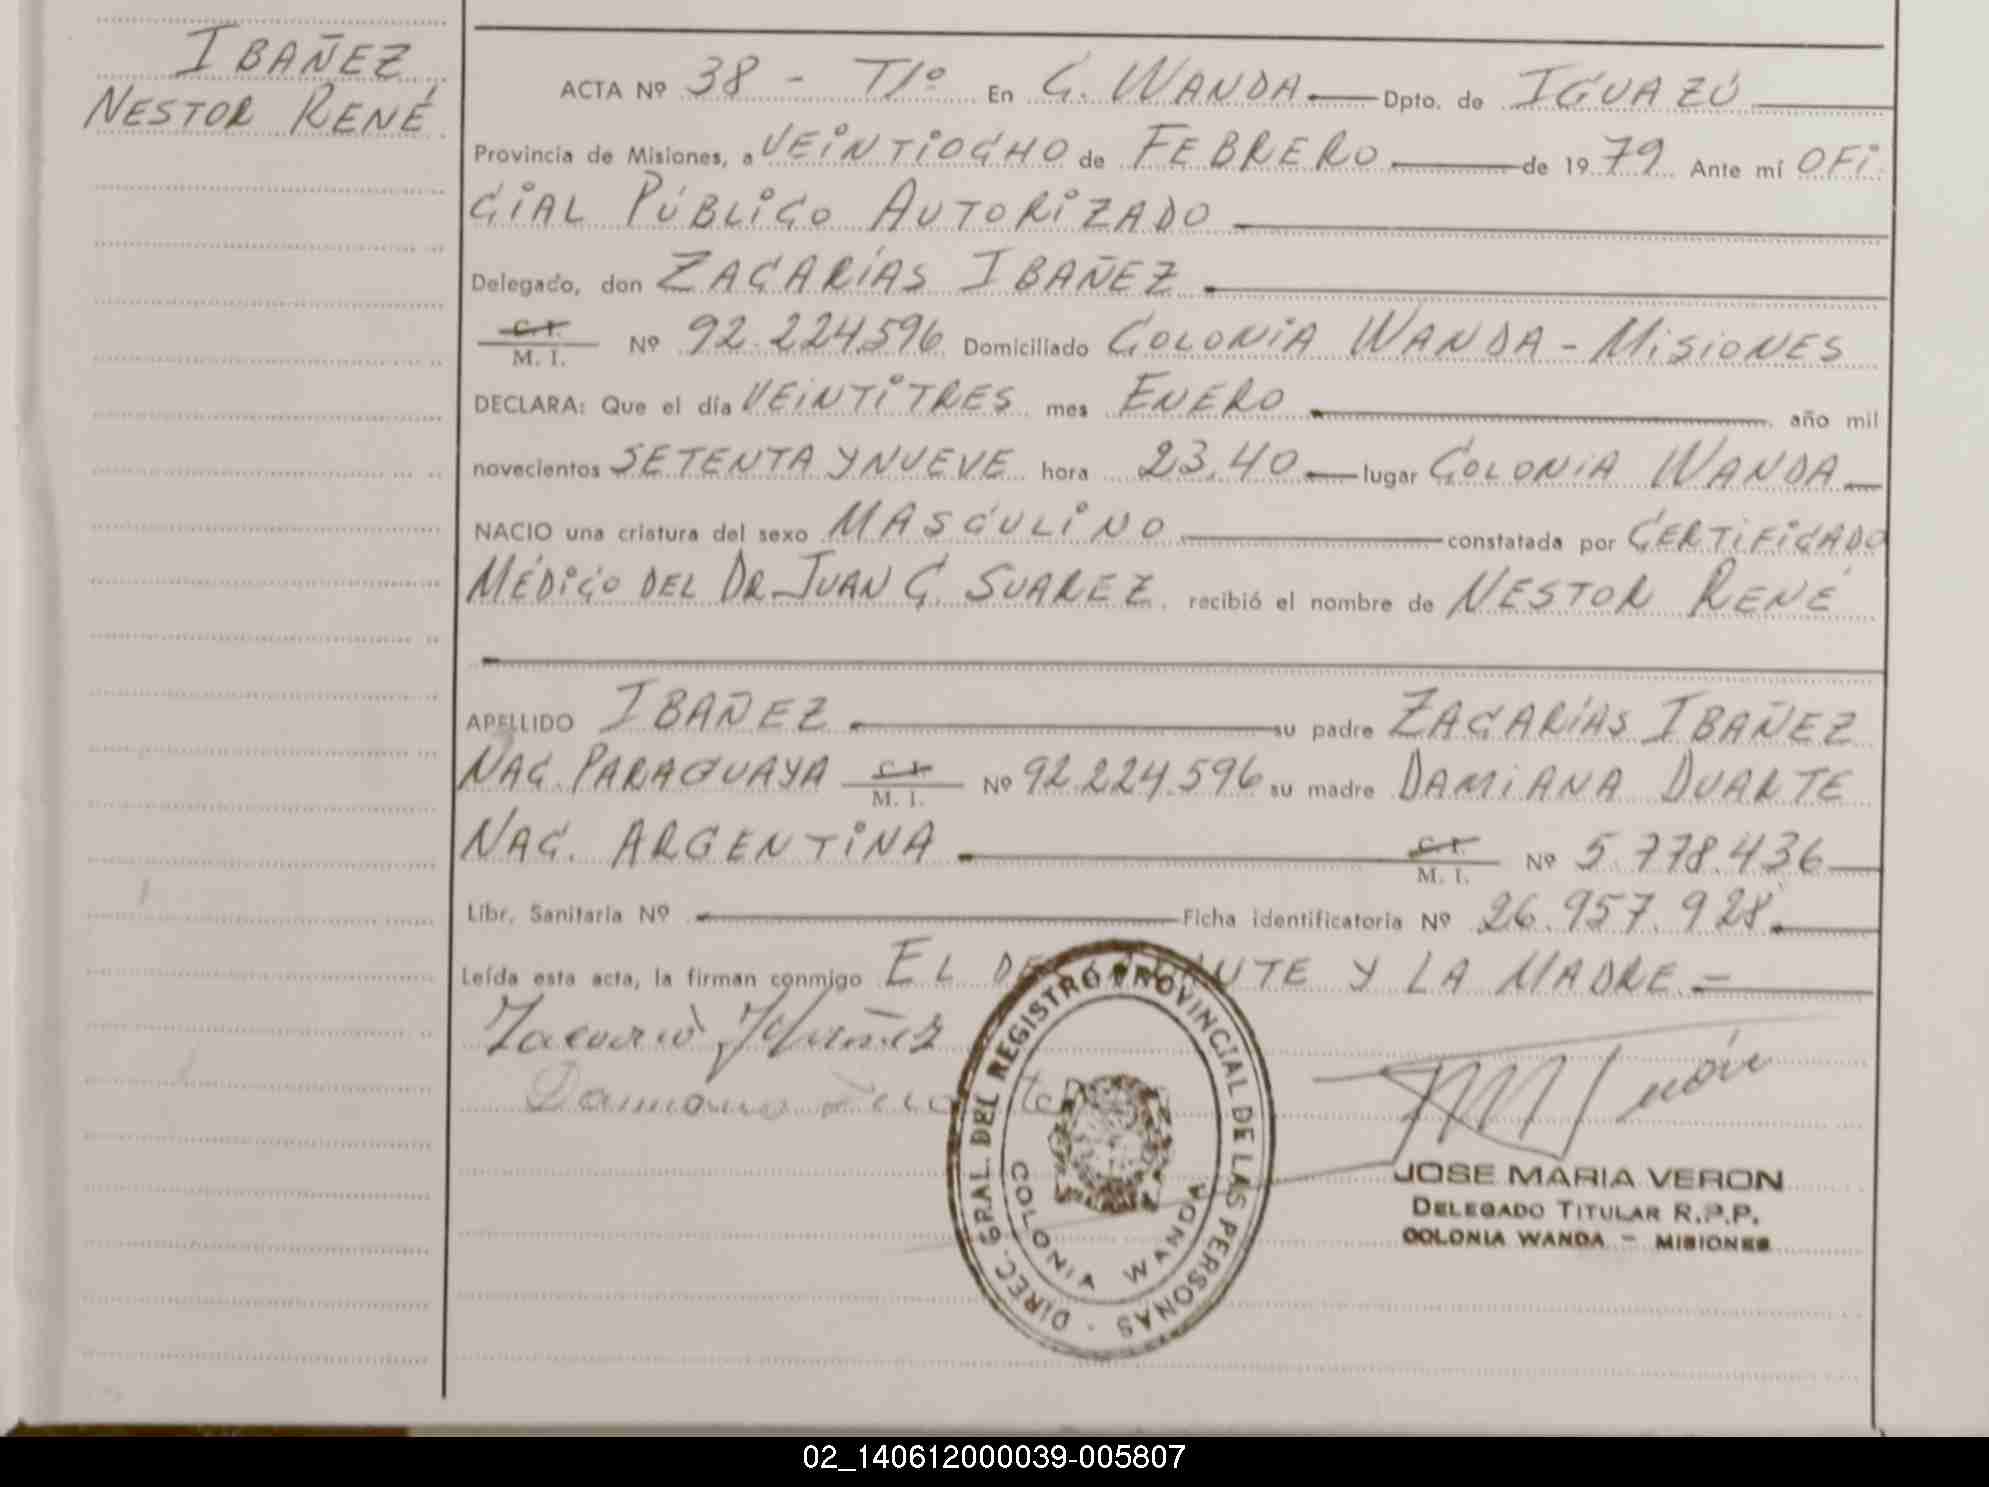 IBAÑEZ,
NESTOR RENÉ
ACTA Nº 38 - Tº1º En C. WANDA Dpto. de IGUAZÚ
Provincia de Misiones, a VEINTIOCHO de FEBRERO de 1979 Ante mí OFI
CIAL PÚBLICO AUTORIZADO
Delegado, don ZACARÍAS IBAÑEZ
C. I.
M. I. Nº 92.224.596 Domiciliado COLONIA WANDA - MISIONES
DECLARA: Que el día VEINTITRES mes ENERO año mil
novecientos SETENTA Y NUEVE hora 23.40 lugar COLONIA WANDA
NACIO una criatura del sexo MASCULINO constatada por CERTIFICADO
MÉDICO DEL DR. JUAN C. SUAREZ recibió el nombre de NESTOR RENÉ
APELLIDO IBAÑEZ su padre ZACARÍAS IBAÑEZ
NAC. PARAGUAYA C. I. M. I. Nº 92.224.596 su madre DAMIANA DUARTE
NAC. ARGENTINA C. I. M. I. Nº 5.778.436
Libr. Sanitaria Nº Ficha identificatoria Nº 26.957.928
Leída esta acta, la firman conmigo EL DECLARANTE Y LA MADRE.=
Zacarias Ibañez
Damiana Duarte
DIREC. GRAL. DEL REGISTRO PROVINCIAL DE LAS PERSONAS
COLONIA WANDA
JOSE MARIA VERON
DELEGADO TITULAR R.P.P.
COLONIA WANDA - MISIONES
02_140612000039-005807